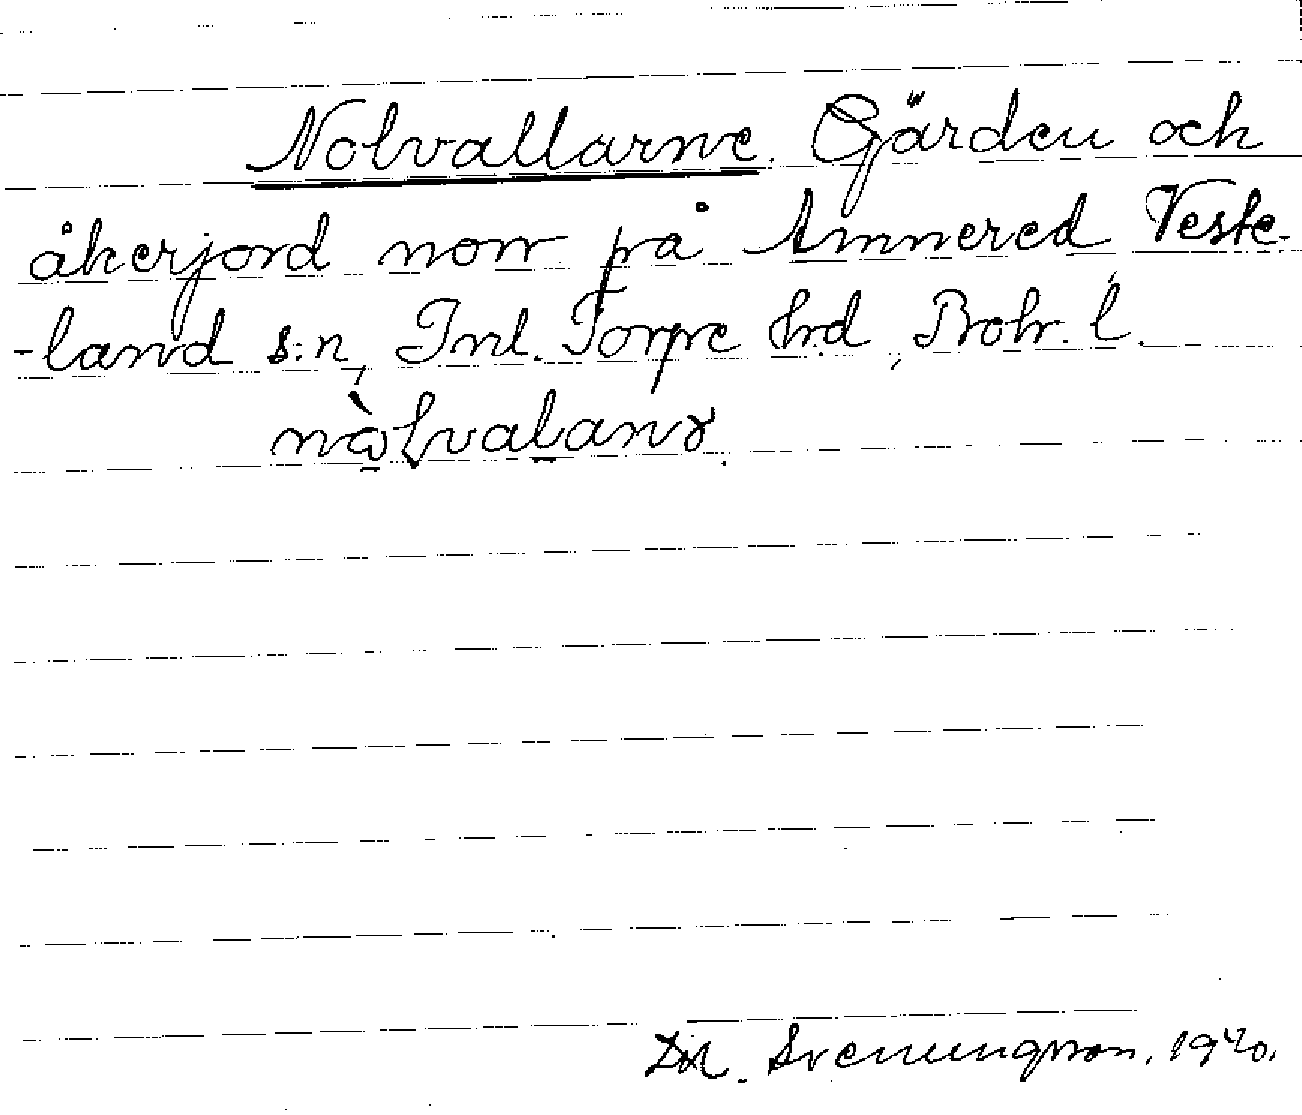 Nolvallarne. Gärden och
åkerjord norr på Amnered Veste-
-land s:n, Inl. Torpe hrd, Bohr. l.
Svenungsson. 1940.